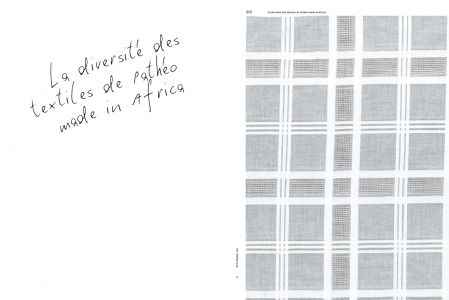 La diversité des
textiles de Pathéo
made in Africa
La diversité des textiles de Pathéo made in Africa